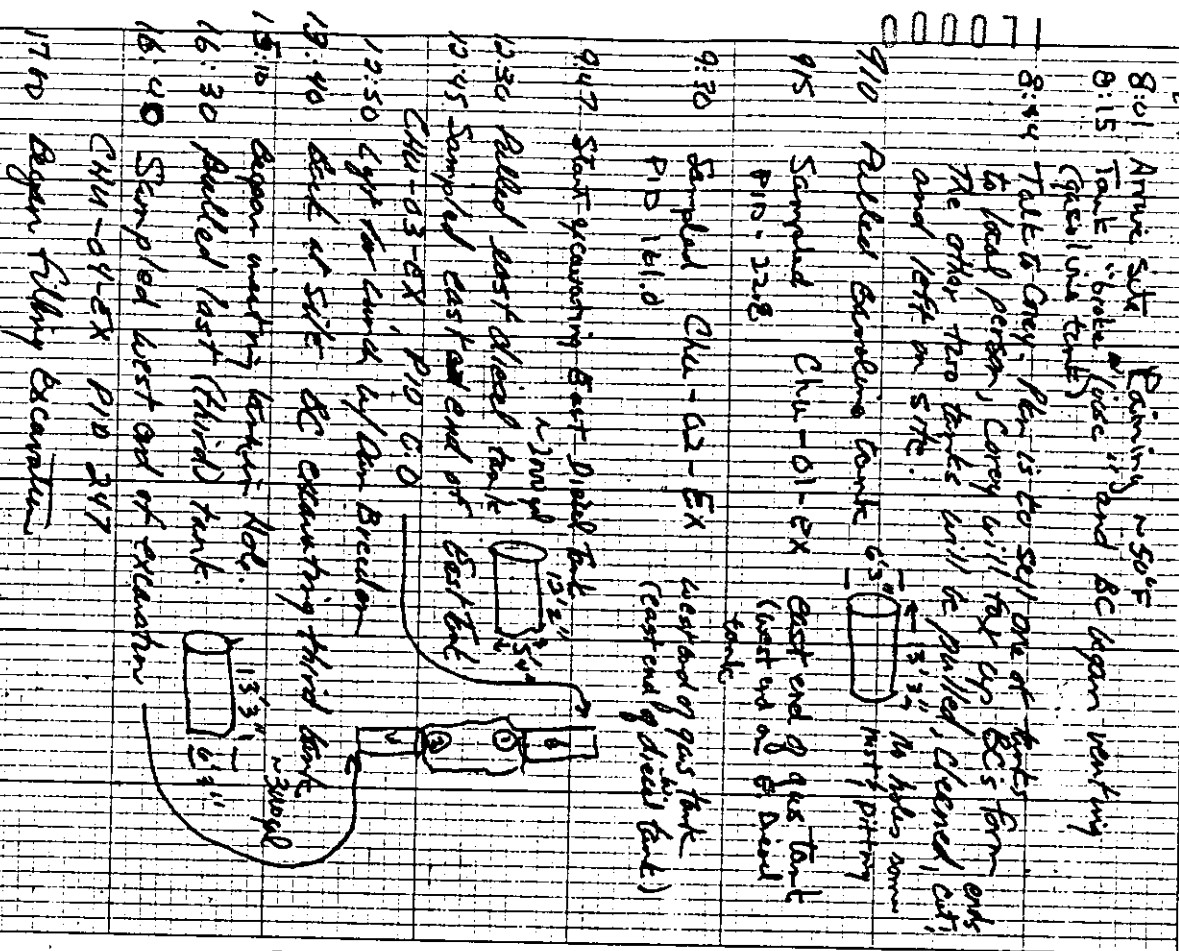 000017
8:01 Arrive site Raining ~50°F
8:15 Tank "broke loose" and BC began venting
(gasoline tank)
8:44 Talk to Corey. Plan is to sell one of tanks
to local person, Corey will fax up BC's form
The other two tanks will be pulled, cleaned, cut, ends
and left on site.
910 Pulled Gasoline tank 6'3" 13'3" No holes some
rust, pitting
915 Sampled Chu-01-EX east end of gas tank
PID-228 (west end of E Diesel
tank
9:30 Sampled Chu-02-EX west end of gas tank
PID 161.0 (east end of W. diesel tank)
9:47 Start excavating East Diesel Tank
~3000 gal 13'2"
12:30 Pulled east diesel tank 5'4"
12:45 Sampled east end of East tank
CHU-03-EX, PID 0.0
12:50 Left for lunch w/ Dan Breedlon
13:40 Back at site BC excavating third tank
15:10 Began venting tank in Hole. ~3000gal
16:30 Pulled last (third) tank. 13'3" 6'3"
16:40 Sampled west end of excavation
CHU-04-EX PID 247
1710 Began filling excavation
6
1
2